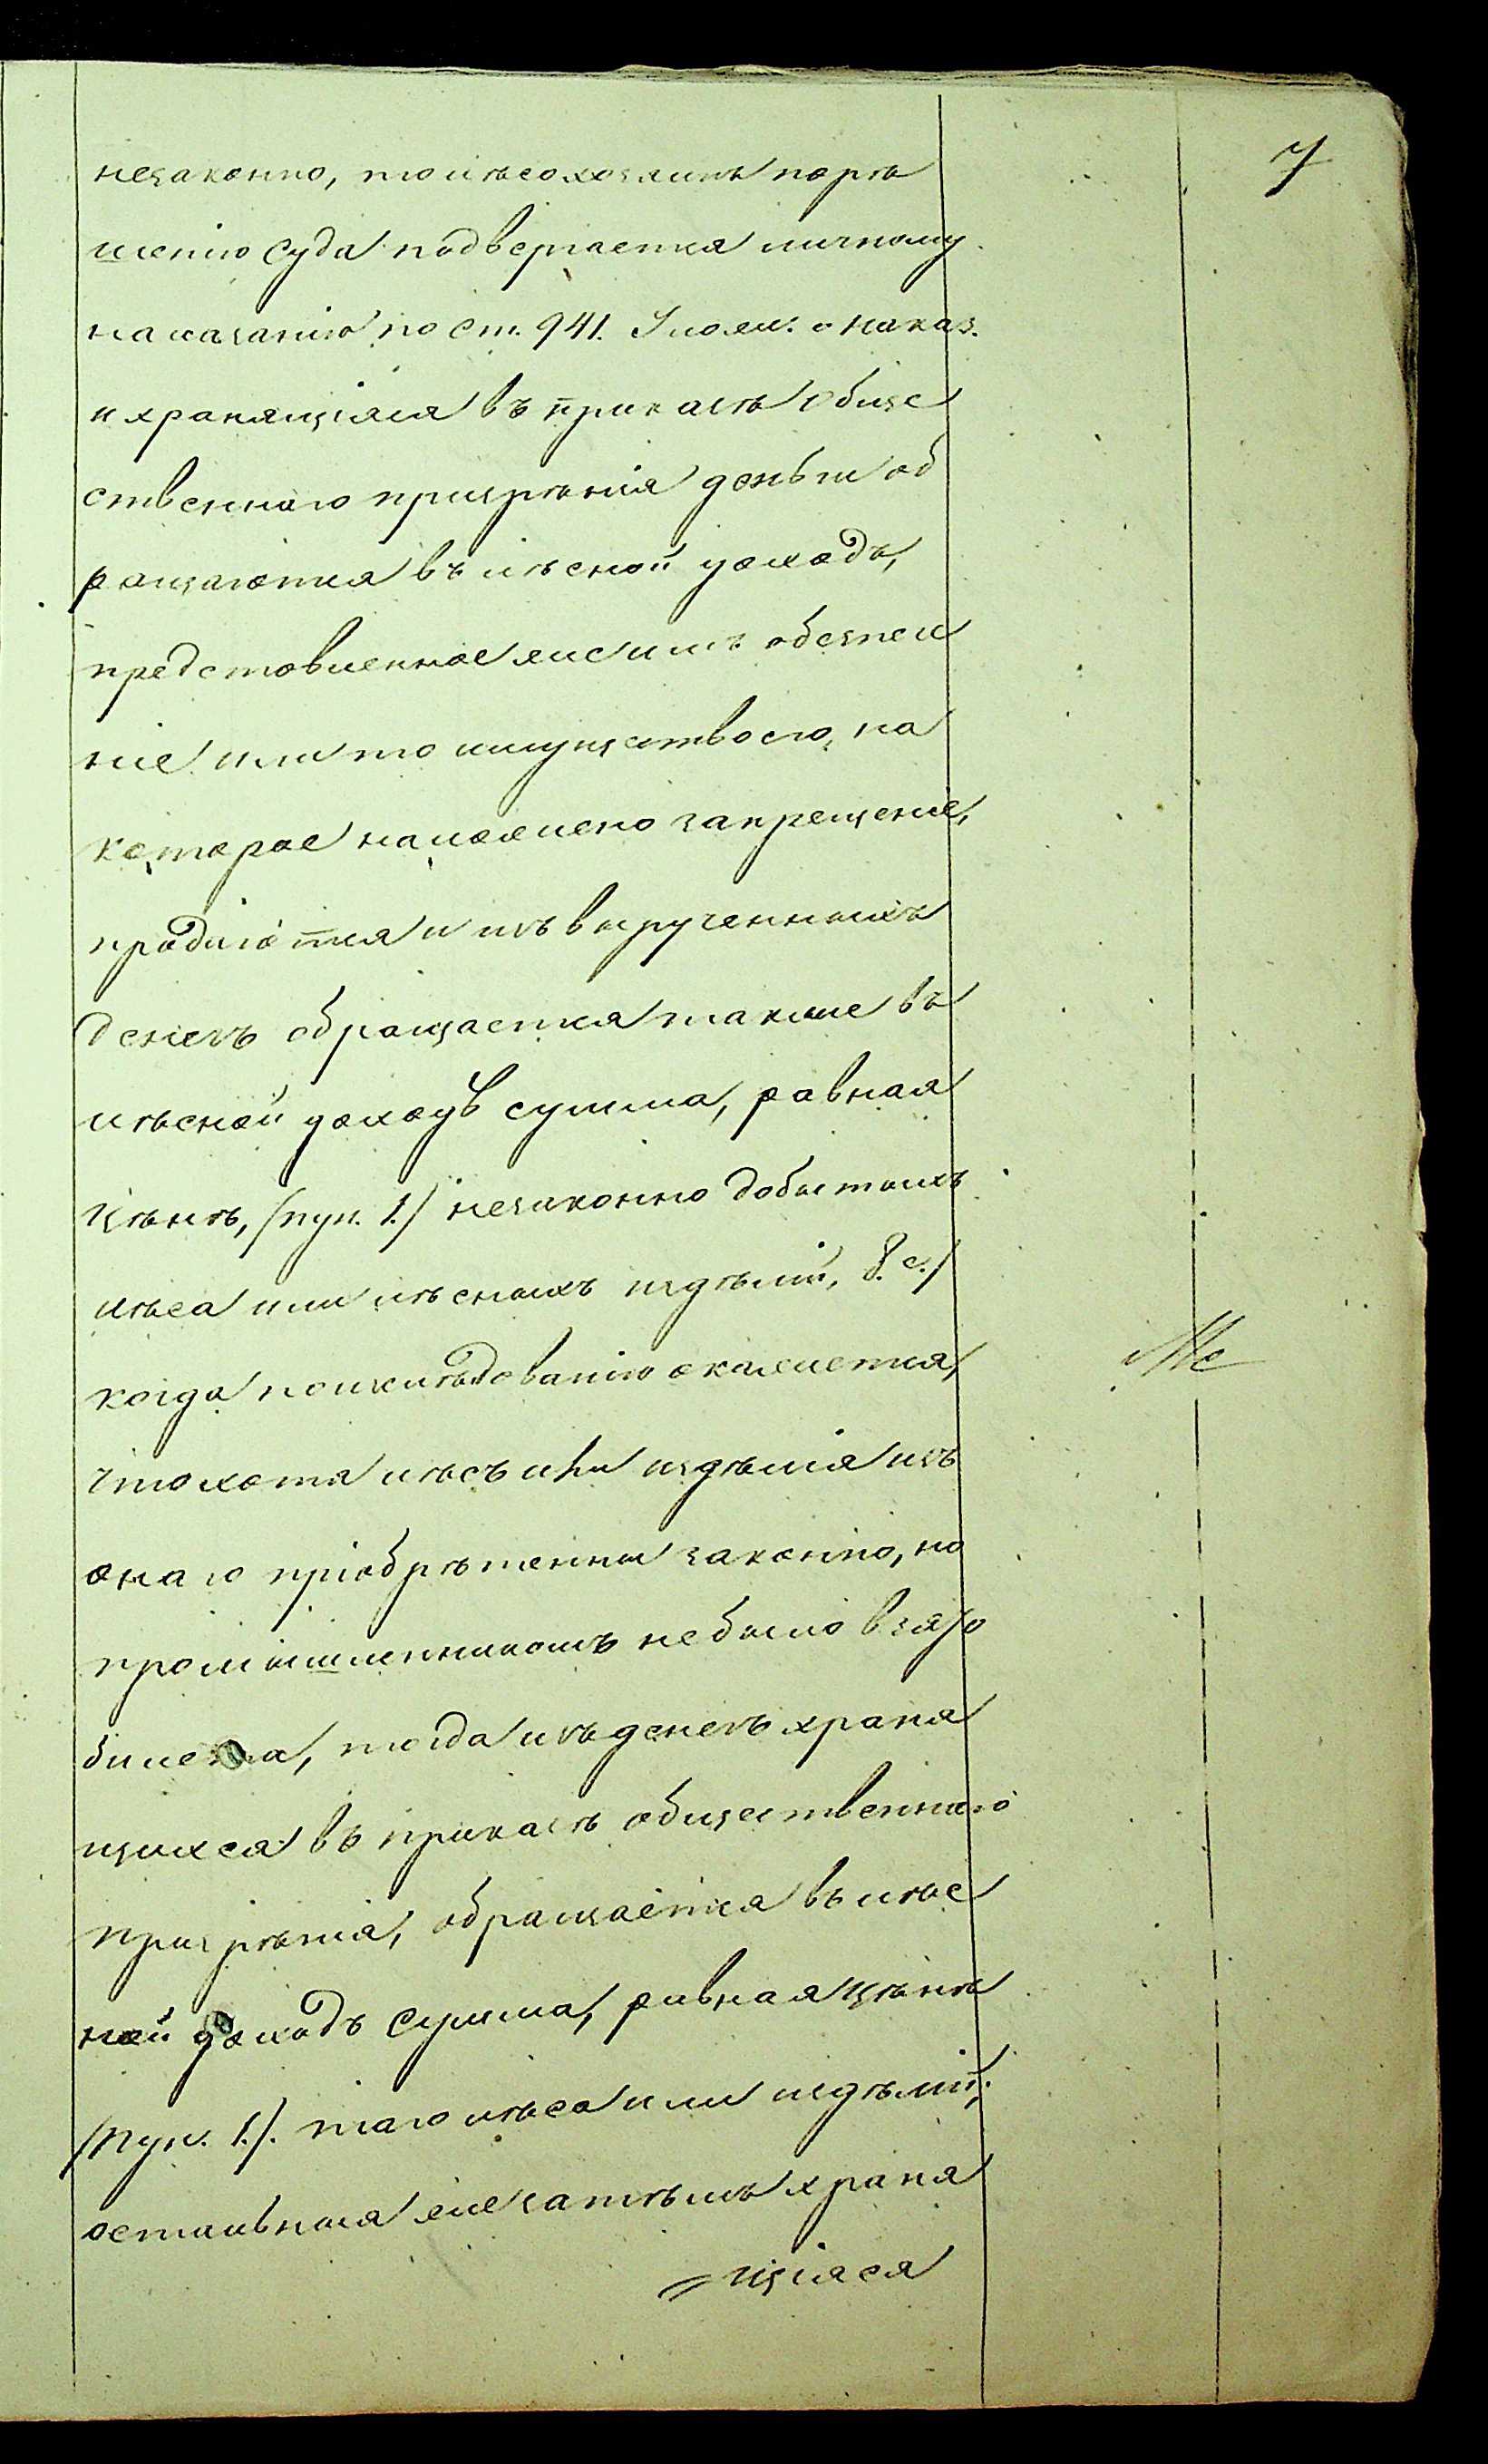 7
незаконно, то лѣсохозяинъ по рѣ
шенію Суда подвергается личному
наказанію по ст. 941. Улож. о наказ.
и хранящіяся въ приказѣ обще
ственнаго призрѣнія деньги об
ращаются въ лѣсной доходъ,
представленное же имъ обезпече
ніе или то имущество его, на
которое наложено запрещеніе,
продаются и изъ вырученныхъ
денегъ обращается также въ
лѣсной доходъ сумма, равная
цѣнѣ, (пун. 1.) незаконно добытыхъ
лѣса или лѣсныхъ издѣлій, в. с.)
когда по изслѣдованію окажется,
что хотя лѣсъ или издѣлія изъ
онаго пріобрѣтены законно, но
промышленникомъ не было взято
билета, тогда изъ денегъ храня
щихся въ приказѣ общественнаго
призрѣнія, обращается въ лѣс
ной доходъ сумма, равная цѣнѣ
(пун. 1.). того лѣса или издѣлій;
остальныя же затѣмъ храня
щіяся